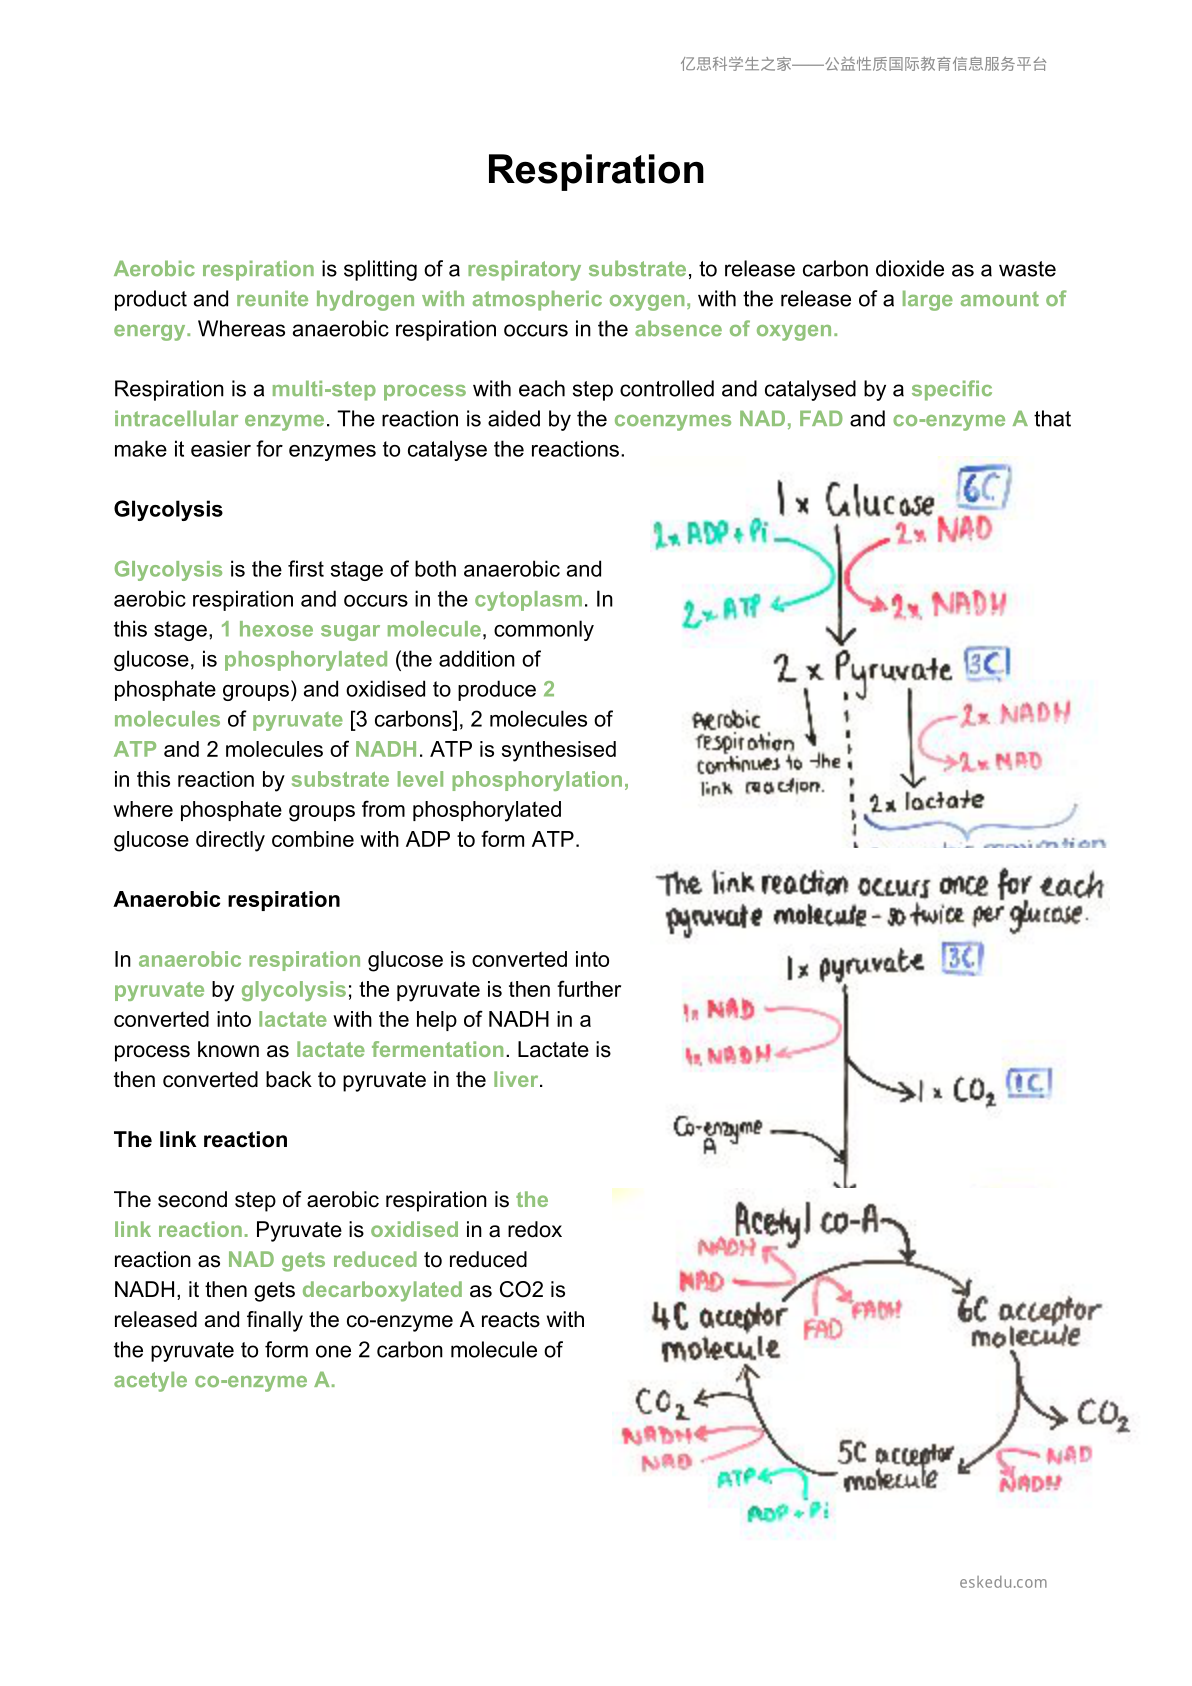 亿思科学生之家——公益性质国际教育信息服务平台
Respiration
Aerobic respiration is splitting of a respiratory substrate, to release carbon dioxide as a waste
product and reunite hydrogen with atmospheric oxygen, with the release of a large amount of
energy. Whereas anaerobic respiration occurs in the absence of oxygen.
Respiration is a multi-step process with each step controlled and catalysed by a specific
intracellular enzyme. The reaction is aided by the coenzymes NAD, FAD and co-enzyme A that
make it easier for enzymes to catalyse the reactions.
Glycolysis
Glycolysis is the first stage of both anaerobic and
aerobic respiration and occurs in the cytoplasm. In
this stage, 1 hexose sugar molecule, commonly
glucose, is phosphorylated (the addition of
phosphate groups) and oxidised to produce 2
molecules of pyruvate [3 carbons], 2 molecules of
ATP and 2 molecules of NADH. ATP is synthesised
in this reaction by substrate level phosphorylation,
where phosphate groups from phosphorylated
glucose directly combine with ADP to form ATP.
Anaerobic respiration
In anaerobic respiration glucose is converted into
pyruvate by glycolysis; the pyruvate is then further
converted into lactate with the help of NADH in a
process known as lactate fermentation. Lactate is
then converted back to pyruvate in the liver.
The link reaction
The second step of aerobic respiration is the
link reaction. Pyruvate is oxidised in a redox
reaction as NAD gets reduced to reduced
NADH, it then gets decarboxylated as CO2 is
released and finally the co-enzyme A reacts with
the pyruvate to form one 2 carbon molecule of
acetyle co-enzyme A.
1 x Glucose 6C
2x ADP + Pi
2x NAD
2x ATP
2x NADH
2 x Pyruvate 3C
Aerobic
respiration
continues to the
link reaction.
2x NADH
2x NAD
2x lactate
The link reaction occurs once for each
pyruvate molecule - so twice per glucose.
1x pyruvate 3C
1x NAD
1x NADH
1 x CO2 1C
Co-enzyme
A
Acetyl co-A
NADH
NAD
FADH
FAD
4C acceptor
molecule
6C acceptor
molecule
CO2
CO2
NADH
NAD
5C acceptor
molecule
NAD
NADH
ATP
ADP + Pi
eskedu.com